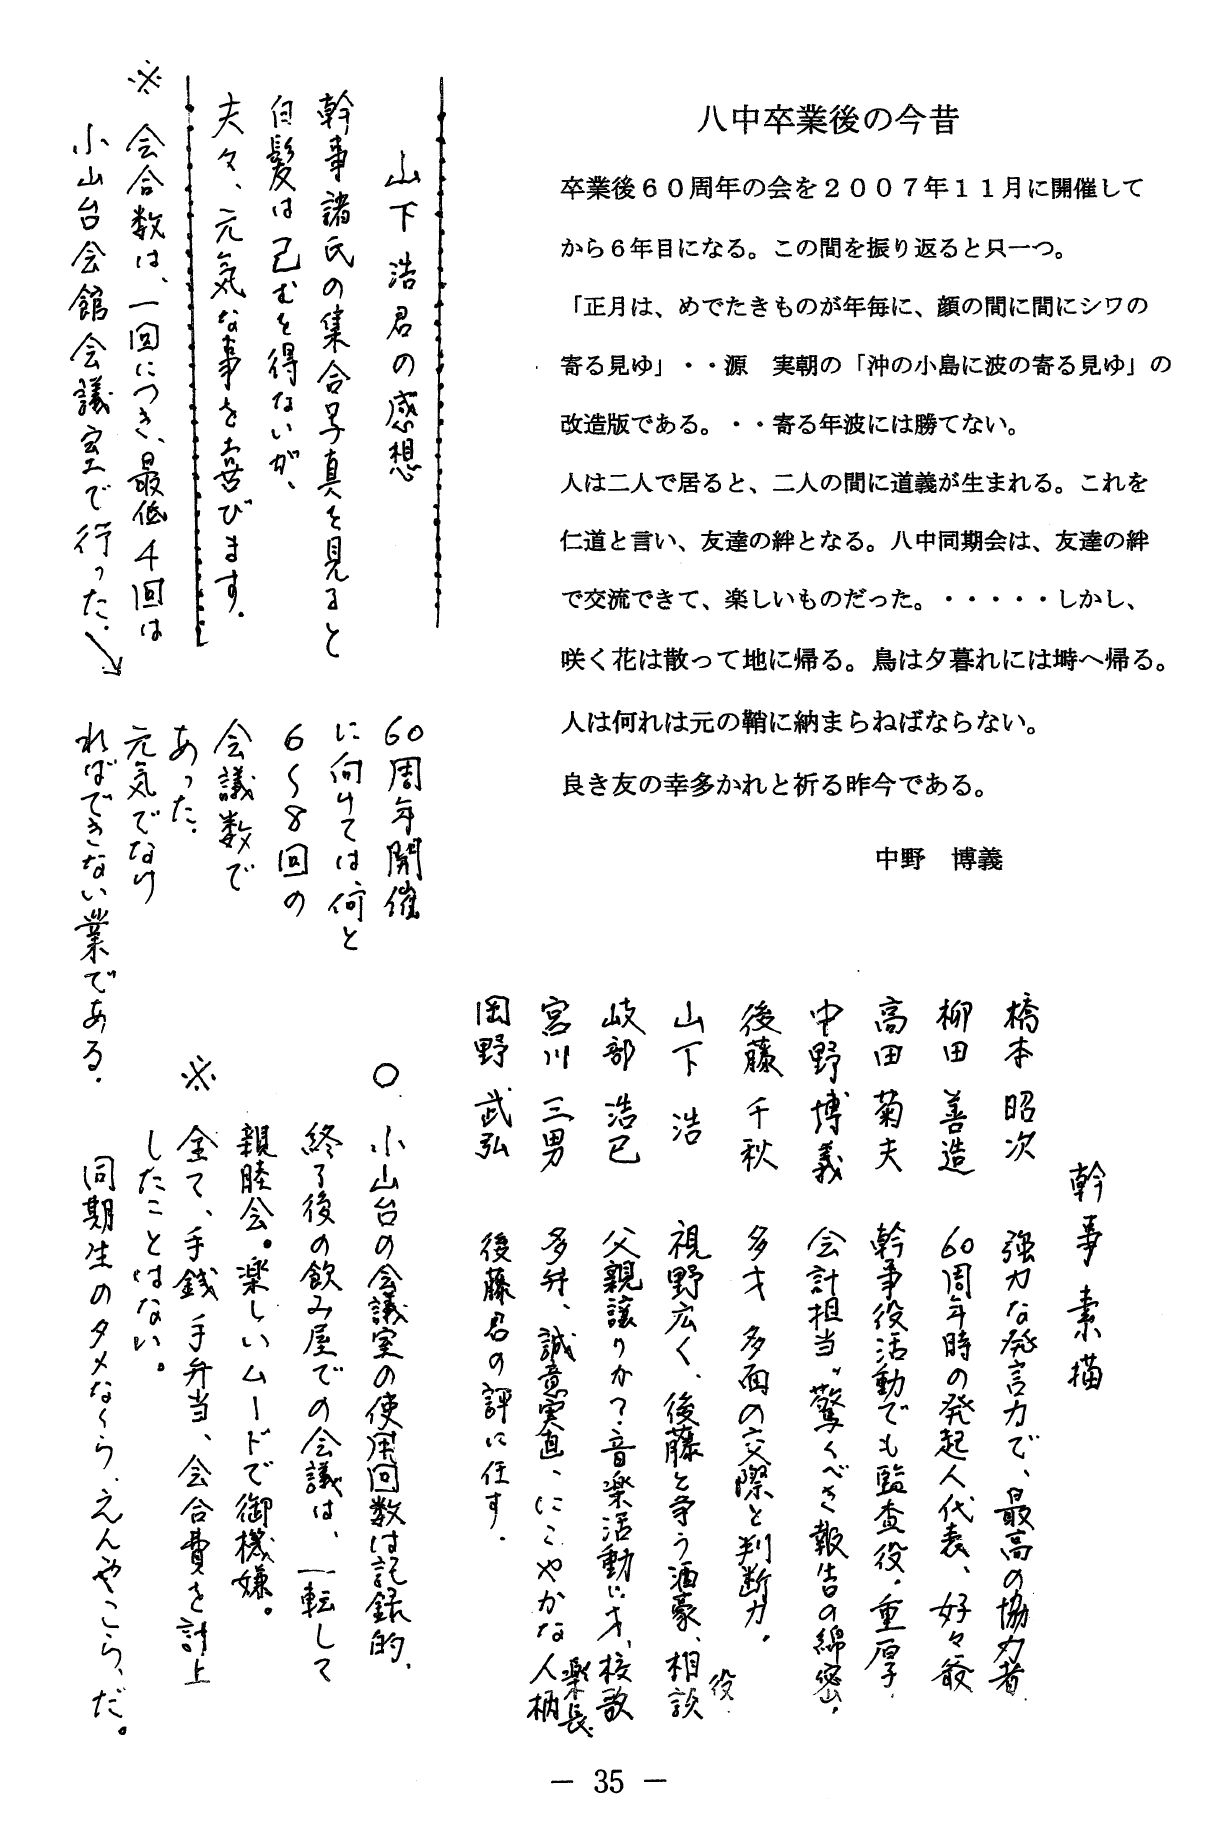 八中卒業後の今昔
卒業後６０周年の会を２００７年１１月に開催して
から６年目になる。この間を振り返ると只一つ。
「正月は、めでたきものが年毎に、顔の間に間にシワの
寄る見ゆ」・・源　実朝の「沖の小島に波の寄る見ゆ」の
改造版である。・・寄る年波には勝てない。
人は二人で居ると、二人の間に道義が生まれる。これを
仁道と言い、友達の絆となる。八中同期会は、友達の絆
で交流できて、楽しいものだった。・・・・・しかし、
咲く花は散って地に帰る。鳥は夕暮れには塒へ帰る。
人は何れは元の鞘に納まらねばならない。
良き友の幸多かれと祈る昨今である。
中野　博義
山下浩君の感想
幹事諸氏の集合写真を見ると
白髪は已むを得ないが、
夫々、元気な事を喜びます。
※ 会合数は、一回につき、最低4回は
小山台会館会議室で行った。
60周年開催
に向けては、何と
6〜8回の
会議数で
あった。
元気でなけ
ればできない業である。
幹事素描
橋本昭次　強力な発言力で、最高の協力者
柳田善造　60周年時の発起人代表、好々爺
高田菊夫　幹事役活動でも監査役。重厚
中野博義　会計担当。驚くべき報告の綿密。
後藤千秋　多才 多面の交際と判断力。
山下浩　視野広く、後藤と争う酒豪、相談役
岐部浩已　父親譲りか？音楽活動に才、校歌楽長
宮川三男　多弁、誠意実直、にこやかな人柄
岡野武弘　後藤君の評に任す。
○ 小山台の会議室の使用回数は記録的。
終了後の飲み屋での会議は、一転して
親睦会。楽しいムードで御機嫌。
※ 全て、手銭手弁当、会合費を計上
したことはない。
同期生のタメなら、えんやこら、だ。
― 35 ―